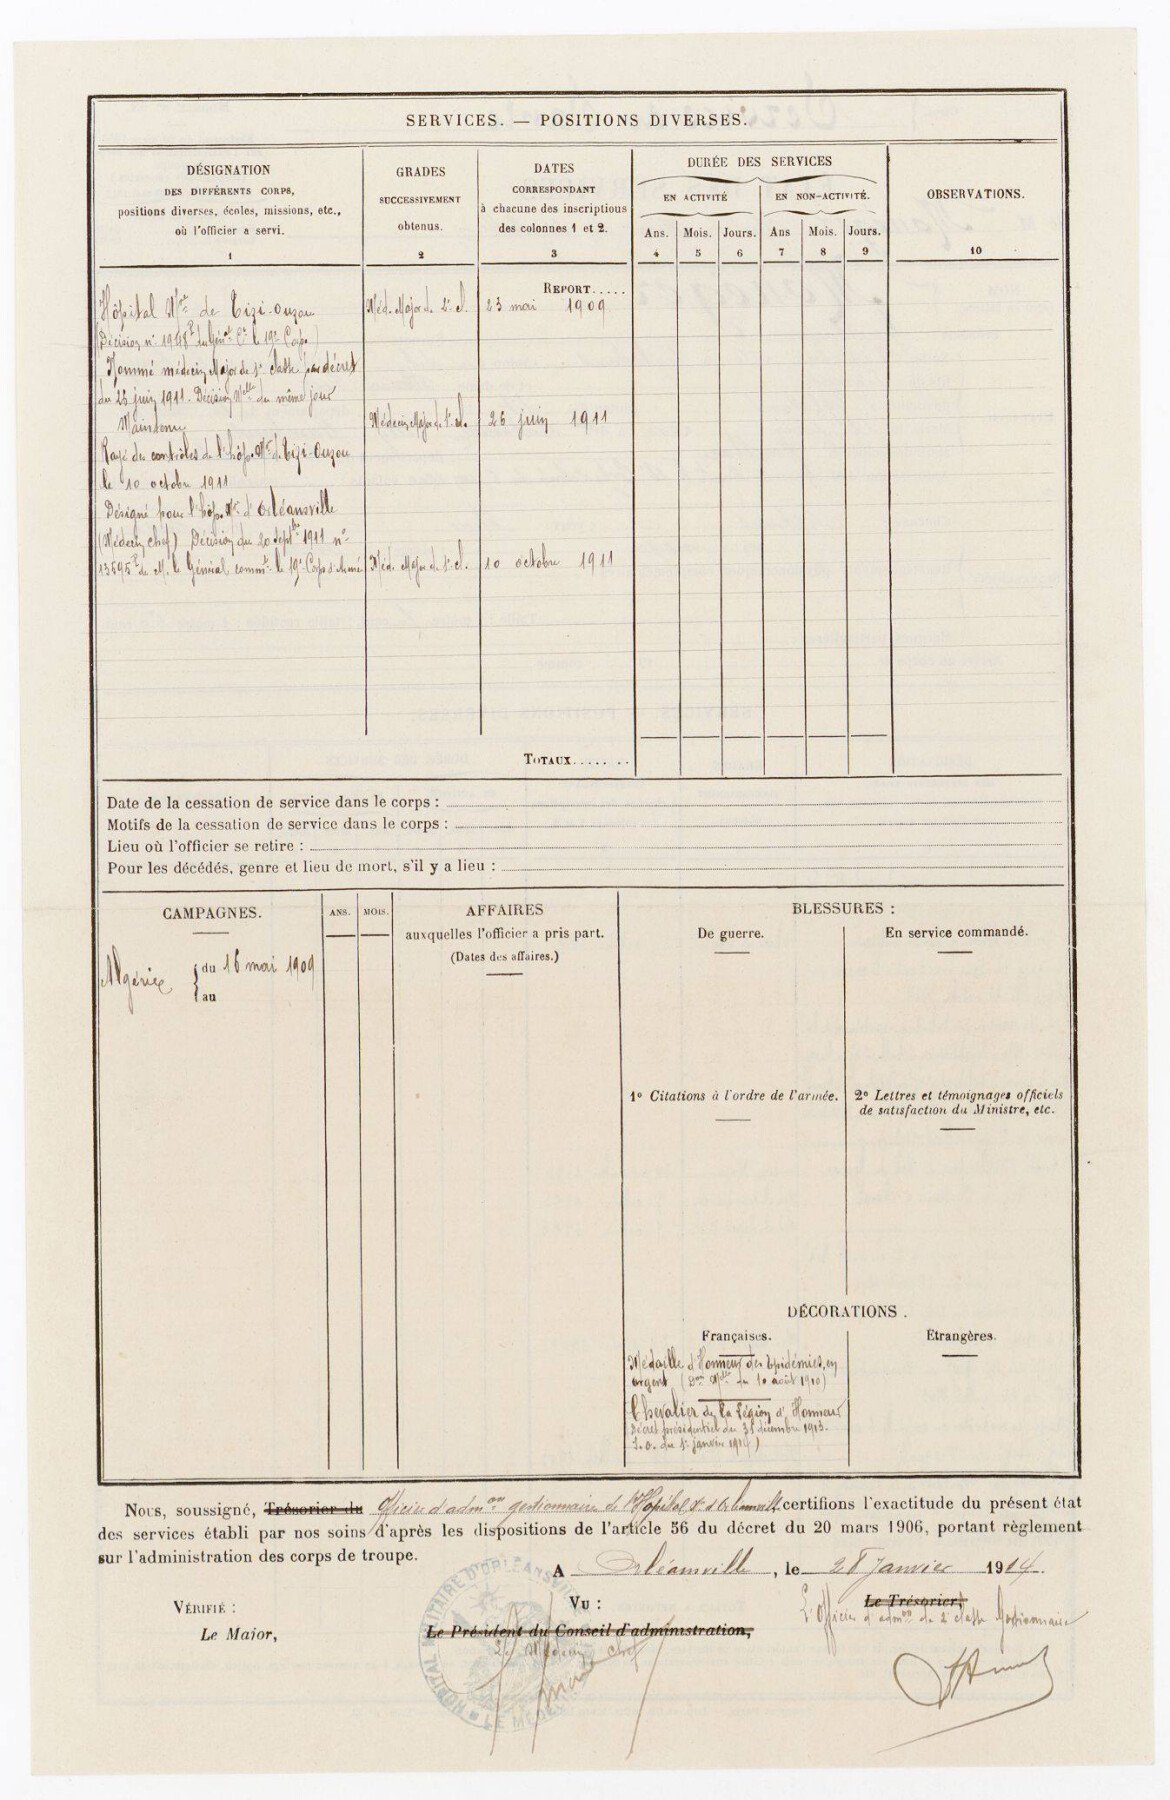 SERVICES. — POSITIONS DIVERSES.
DÉSIGNATION
DES DIFFÉRENTS CORPS,
positions diverses, écoles, missions, etc.,
où l'officier a servi.
1
GRADES
SUCCESSIVEMENT
obtenus.
2
DATES
CORRESPONDANT
à chacune des inscriptions
des colonnes 1 et 2.
3
DURÉE DES SERVICES
EN ACTIVITÉ
EN NON-ACTIVITÉ.
Ans. Mois. Jours. Ans Mois. Jours.
4 5 6 7 8 9
OBSERVATIONS.
10
REPORT.....
Hôpital Mre de Tizi-Ouzou Méd. Major de 2e cl. 23 mai 1909
(Décision n° du Génal Ct le 19e Corps)
Nommé médecin Major de 1e classe par décret
du 23 juin 1911. Décision Melle du même jour
Maintenu Médecin Major de 1e cl. 26 juin 1911
Rayé des contrôles de l'hôp. Mre de Tizi-Ouzou
le 10 octobre 1911
Désigné pour l'hôp. Mre d'Orléansville
(Médecin chef) Décision du 20 septbre 1911 n°
13595 de M. le Général commt le 19e Corps d'Armée Méd. Major de 1e cl. 10 octobre 1911
TOTAUX.......
Date de la cessation de service dans le corps :
Motifs de la cessation de service dans le corps :
Lieu où l'officier se retire :
Pour les décédés, genre et lieu de mort, s'il y a lieu :
CAMPAGNES.
ANS. MOIS.
AFFAIRES
auxquelles l'officier a pris part.
(Dates des affaires.)
BLESSURES :
De guerre.
En service commandé.
Algérie { du 16 mai 1909
au
1° Citations à l'ordre de l'armée.
2° Lettres et témoignages officiels
de satisfaction du Ministre, etc.
DÉCORATIONS.
Françaises.
Etrangères.
Médaille d'Honneur des Epidémies, en
argent (Don Melle du 10 août 1910)
Chevalier de la Légion d'Honneur
Décret présidentiel du 31 décembre 1913.
J.O. du 1e janvier 1914)
Nous, soussigné, Trésorier du Officier d'admon gestionnaire de l'Hôpital Mre d'Orléansville, certifions l'exactitude du présent état
des services établi par nos soins d'après les dispositions de l'article 56 du décret du 20 mars 1906, portant règlement
sur l'administration des corps de troupe.
A Orléansville, le 28 Janvier 1914.
VÉRIFIÉ :
Le Major,
VU :
Le Président du Conseil d'administration,
Le Médecin Chef
Le Trésorier,
L'Officier d'admon de 2e classe Gestionnaire
HOPITAL MILITAIRE D'ORLÉANSVILLE